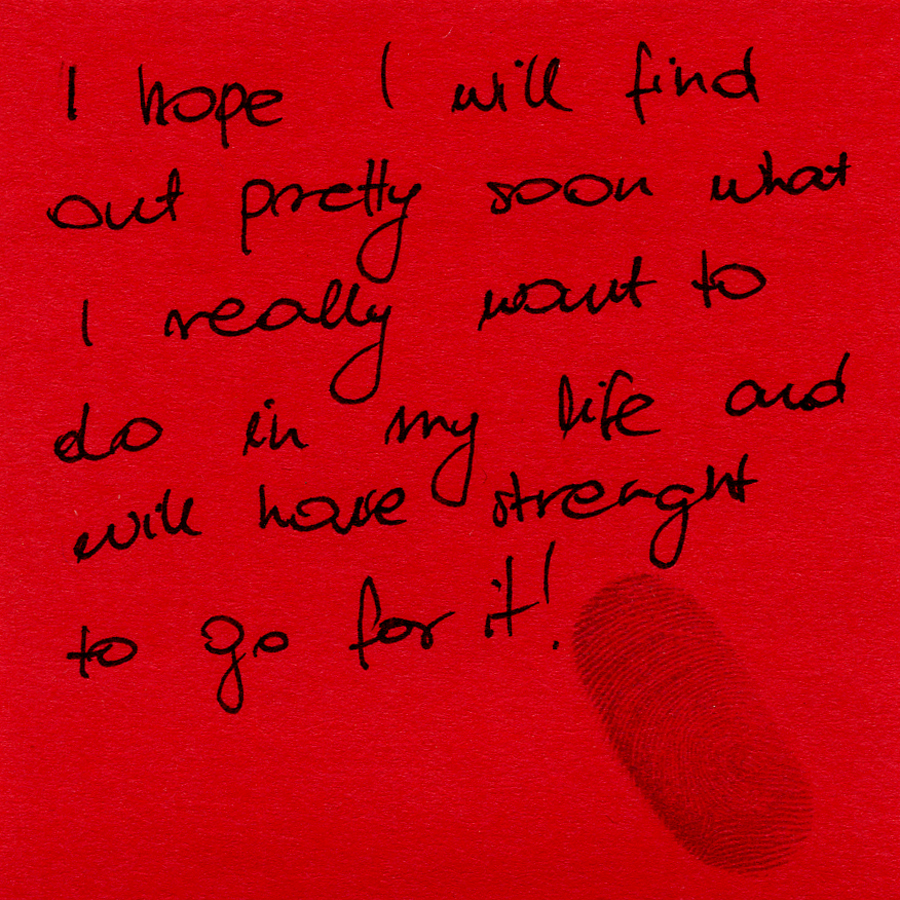 I hope I will find
out pretty soon what
I really want to
do in my life and
will have strenght
to go for it!